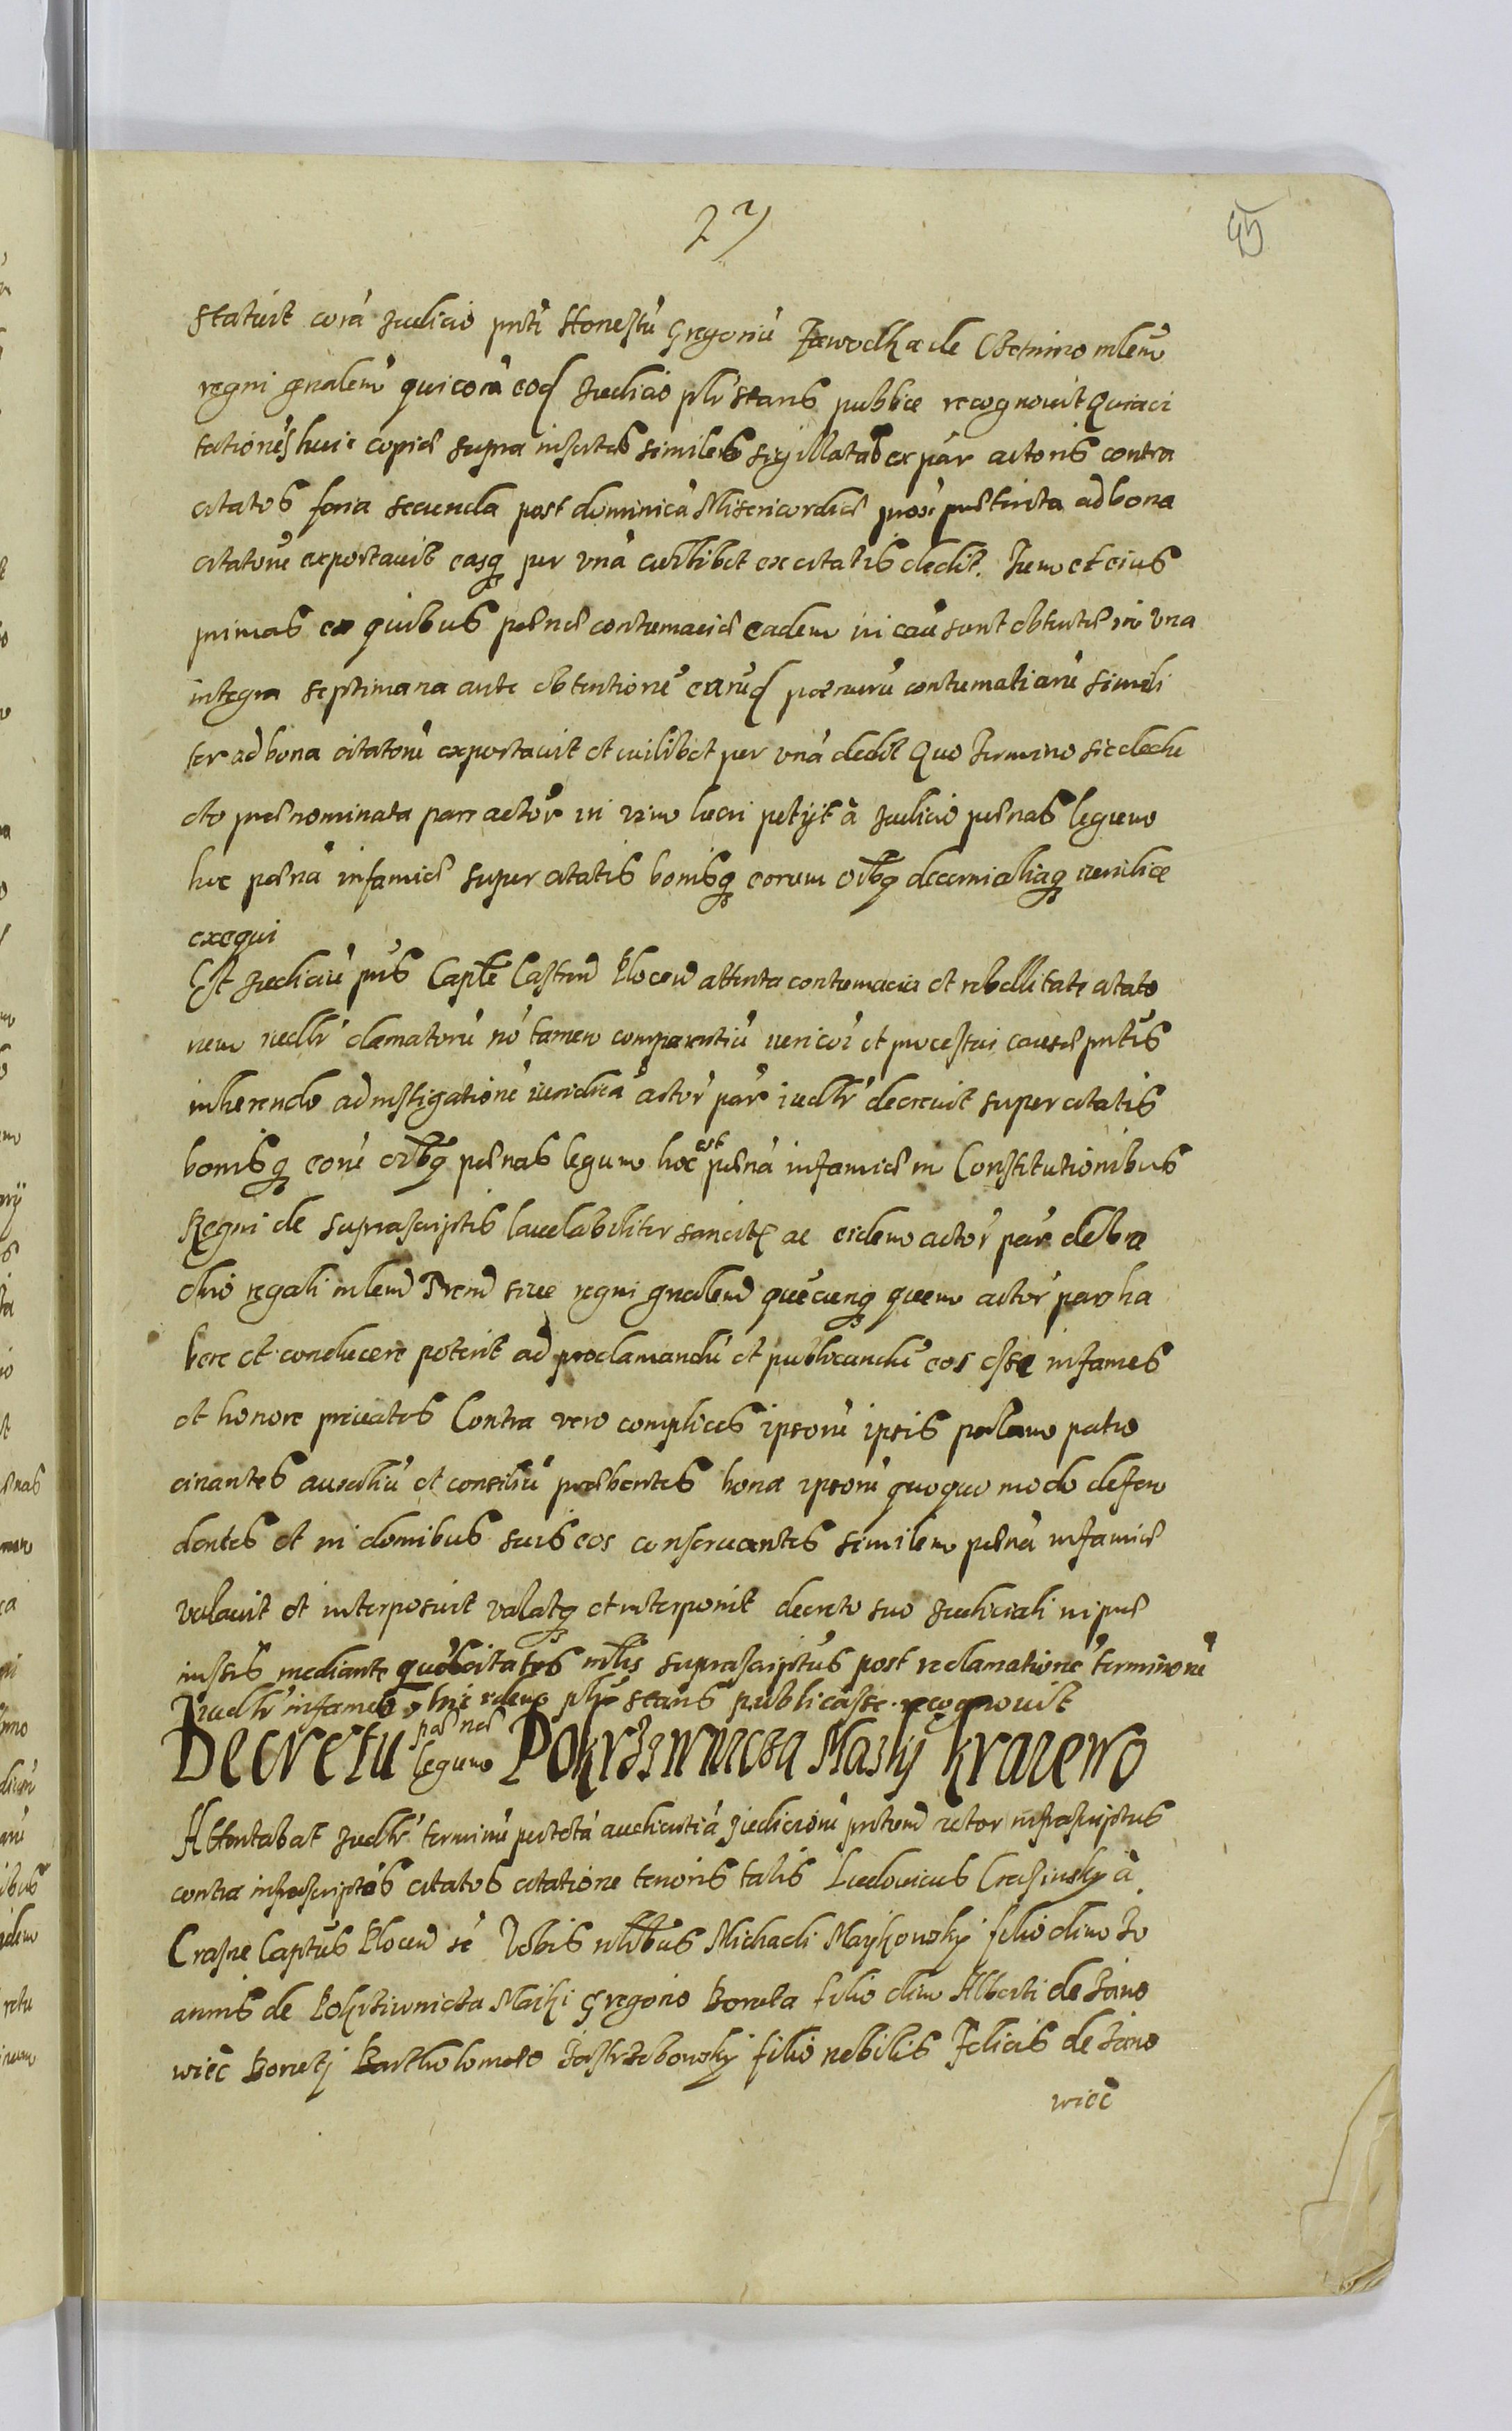 27
45
statuit corã Judicio pnti Honestũ Gregoriũ de mlem̃
regni gnalem̃ qui corã eod Judicio plr stans publice recognouit Quia ci
tationes huic copiæ supra insertæ similes sigillatas ex par actoris contra
citatos feria secunda post dominicã Misericordiæ prox præterita ad bona
citatorũ exportauit easq per vnã cuilibet ex citatis dedit. Item et eius
primas ex quibus pænæ contumaciæ eadem in cau sunt obtentæ in vna
integra septimana ante obtentionẽ earũd pænarũ contumatiarũ simili
ter ad bona citatorũ exportauit et cuilibet per vnã dedit Quo Termino sic dedu
cto prænominata pars actor̃ in vim lucri petijt à Judicio pænas legum
hoc pænã infamiæ super citatis bonisq eorum oĩbq decerni aliaq iuridice
exequi
Et Judiciũ pns Capte Castren Plocen attenta contumacia et rebellitate citato
rum iudlr clamatorũ nõ tamen comparentiũ iuri cõi et processui causæ pntis
inhærendo ad instigationẽ iuridicã actor̃ par iudlr decreuit super citatis
bonisq eorũ oĩbq pænas legum hoc est pænã infamiæ in Constitutionibus
Regni de suprascriptis laudabiliter sancitis ac eidem actor̃ par
regali mlem Tren siue regni gnalem quẽcunq quem actor̃ pars ha
bere et conducere poterit ad proclamandũ et publicandũ eos esse infames
et honore priuatos Contra vero complices ipsorũ ipsis palam patro
cinantes auxiliũ et consiliũ præbentes bona ipsorũ quoquo modo defen
dentes et in domibus suis eos conseruantes similem pænã infamiæ
valauit et interposuit valatq et interponit decreto suo Judiciali in præ
missis mediante quos citatos mlis suprascriptus post reclamationẽ terminorũ
iudlr infames hic idem plr stans publicasse recognouit
Decretu pænæ legum Pokrzywnicza Masky kraiewo
Attentabat Judlr terminũ per totã audientiã Judiciorũ pntium actor infrascriptus
contra infrascriptos citatos citatione tenoris talis Ludouicus Crasinsky à
Crasne Captus Plocen sẽ Vobis nlibus Michaeli Maykowsky filio olim Jo
annis de Pokrziwnicza Maski Gregorio Boruta filio olim Alberti de Jano
wiec Boruti Bartholomeo Jastrzebowsky filio nobilis Felicis de Jano
wiec